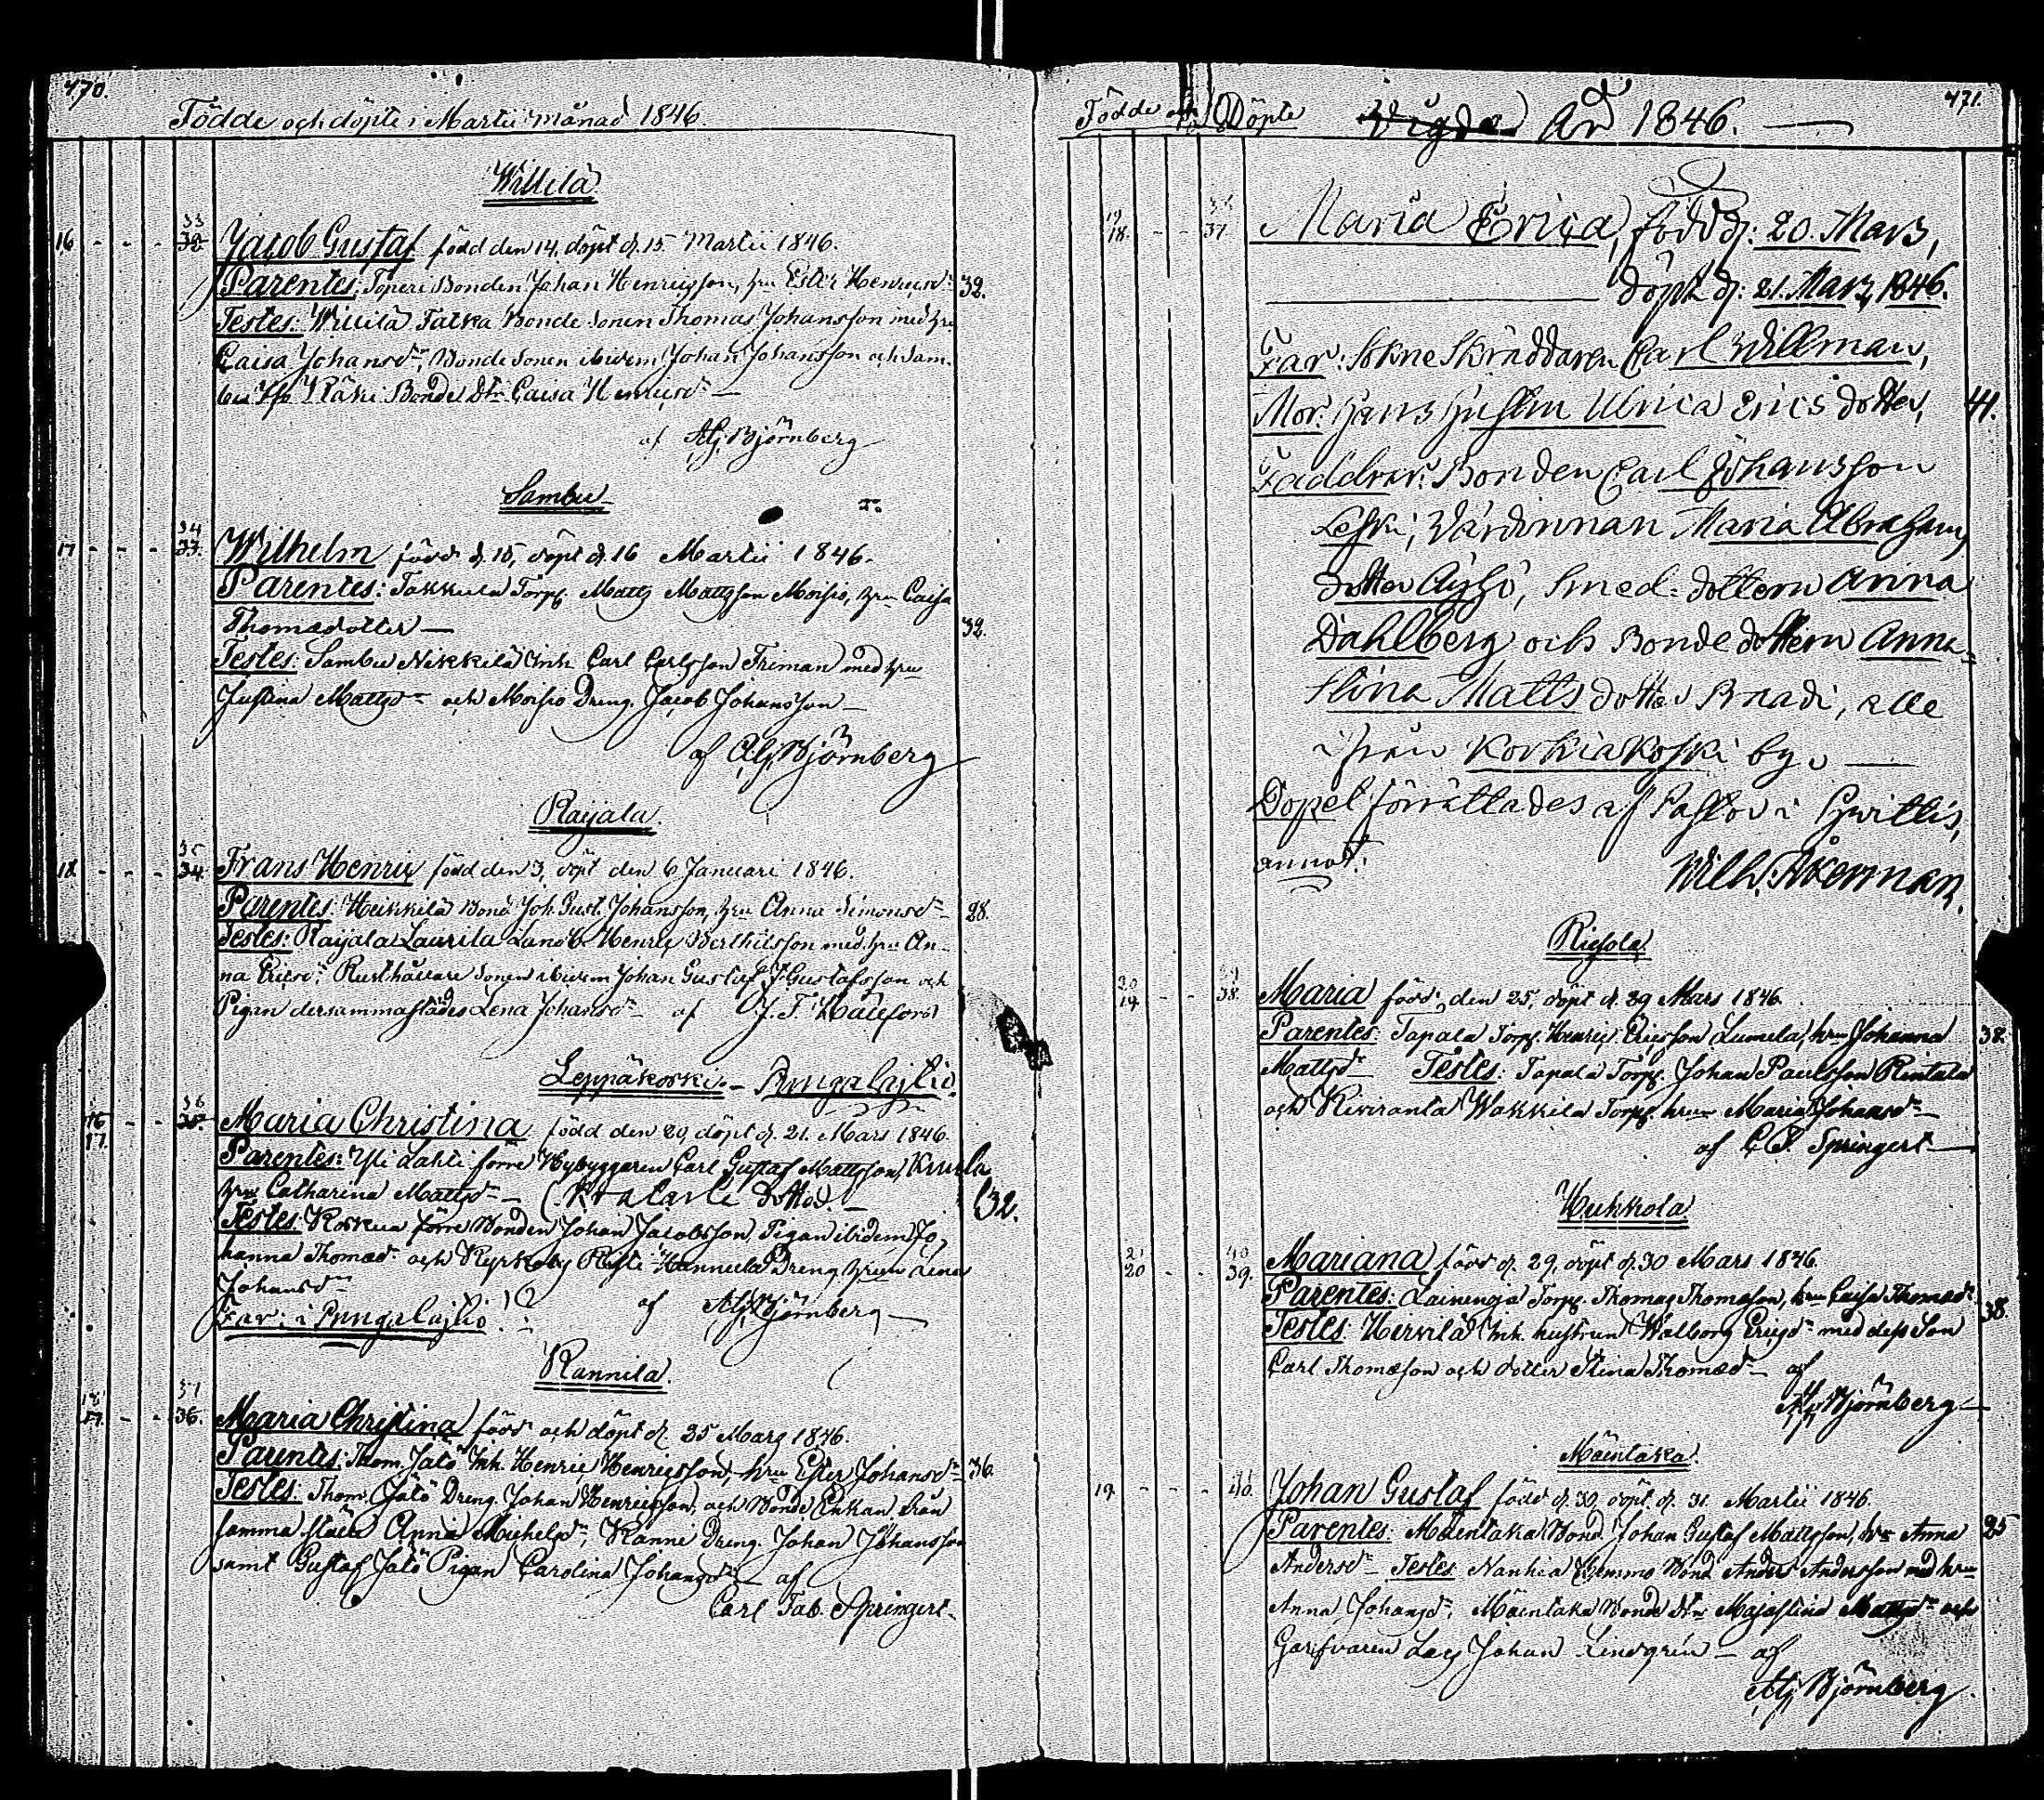 470.
Födde och döpte i Martii månad 1846.
Willilä
16 - - - 33 32 Jacob Gustaf född den 14, döpt d. 15 Martii 1846.
Parentes: Bonden Johan Henricsson, hru Ester Henricsdr 32.
Testes: Willilä Talka Bonde Sonen Thomas Johansson med hru
Caisa Johansdr, Bonde Sonen ibidem Johan Johansson och Sam-
bu Bonde Dtr Caisa Henricsdr —
af Alj. Björnberg
Sambu
17 - - - 34 33. Wilhelm född d. 15, döpt d. 16 Martii 1846.
Parentes: Takkula Torp. Matts Mattsson Moisio, hru Caisa
Thomædotter — 32.
Testes: Sambu Nikkilä Inh. Carl Carlsson Friman med hru
Justina Mattsdr och Moisio Dreng. Jacob Johansson —
af Alj. Björnberg
Raijala.
18 - - - 35 34. Frans Henric född den 3, döpt den 6 Januari 1846.
Parentes: Heikkilä Bond. Joh. Gust. Johansson, hru Anna Simonsdr — 28.
Testes: Raijala Laurila Landb. Henric Berthilsson med hru An-
na Ericsdr Rusthållare Sonen ibidem Johan Gustaf Gustafsson och
Pigan dersammastädes Lena Johansdr — af J. F. Hallfors
Leppäkoski. — Pungalajtio.
16 17. - - 36 35 Maria Christina född den 20, döpt d. 21. Mars 1846.
Parentes: Yli Lahti förre Nybyggaren Carl Gustaf Mattsson,
hru Catharina Mattsdr — dotter. — 32.
Testes: Koskua förre Bonden Johan Jacobsson, Pigan ibidem Jo-
hanna Thomædr och Kyrkoby Hannula Dreng. hru Lena
Johansdr
Far: i Pungalajtio! af Alj. Björnberg —
Kannila.
18 17. - - 37 36. Maria Christina född och döpt d. 25 Mars 1846.
Parentes: Thom. Jalo Inh. Henric Henricsson, hru Ester Johansdr 36.
Testes: Thom. Jalo Dreng. Johan Henricsson, och Bonde Enkan från
samma ställe Anna Michelsdr, Kanne Dreng. Johan Johansson
samt Gustaf Jalo Pigan Carolina Johansdr — af
Carl Fab. Springert.
471.
Födde och Döpte Vigde År 1846. —
19 18. - - 37 Maria Erica, född d: 20. Mars,
döpt d: 21. Mars, 1846.
Far: Sokne Skräddaren Carl Willman,
Mor: Hans hustru Ulrica Erics dotter, 41.
Faddrar: Bonden Carl Johansson
Leski, Värdinnan Maria Abrahams
dotter Äijhö, Smed-dottern Anna
Dahlberg och Bonde dottern Anna-
Stina Matts dotter Pradi, alle
ifrån Korkiakoski by. —
Dopet förrättades af Pastor i Hvittis,
annot:
Wilh. Åkerman.
Riesola
20 19. - - 39 38. Maria född den 25, döpt d. 29 Mars 1846.
Parentes: Tapala Torp. Henric Ericsson Lumela, hru Johanna 38.
Mattsdr Testes: Tapala Torp. Johan Paulsson Rintala
och Kiviranta Wakkila Torp. hru Maria Johansdr —
af C. F. Springert —
Huhkola
21 20 - - 40 39. Mariana född d. 29, döpt d. 30 Mars 1846.
Parentes: Laininga Torp. Thomas Thomason, hru Caisa Thomædr 38.
Testes: Hervilä Inh. hustrun Walborg Ericsdr med dess Son
Carl Thomæson och dotter Stina Thomædr — af
Alj. Björnberg —
Mäentaka.
19. - - - 40. Johan Gustaf född d. 30, döpt d. 31. Martii 1846.
Parentes: Mäentaka Bond. Johan Gustaf Mattsson, hru Anna 25
Andersdr — Testes: Nanhia Hemmo Bond. Anders Andersson med hru
Anna Johansdr, Mäentaka Bonde Dtr Majastina Mattsdr och
Garfvaren Johan Lindgrén — af
Alj. Björnberg.